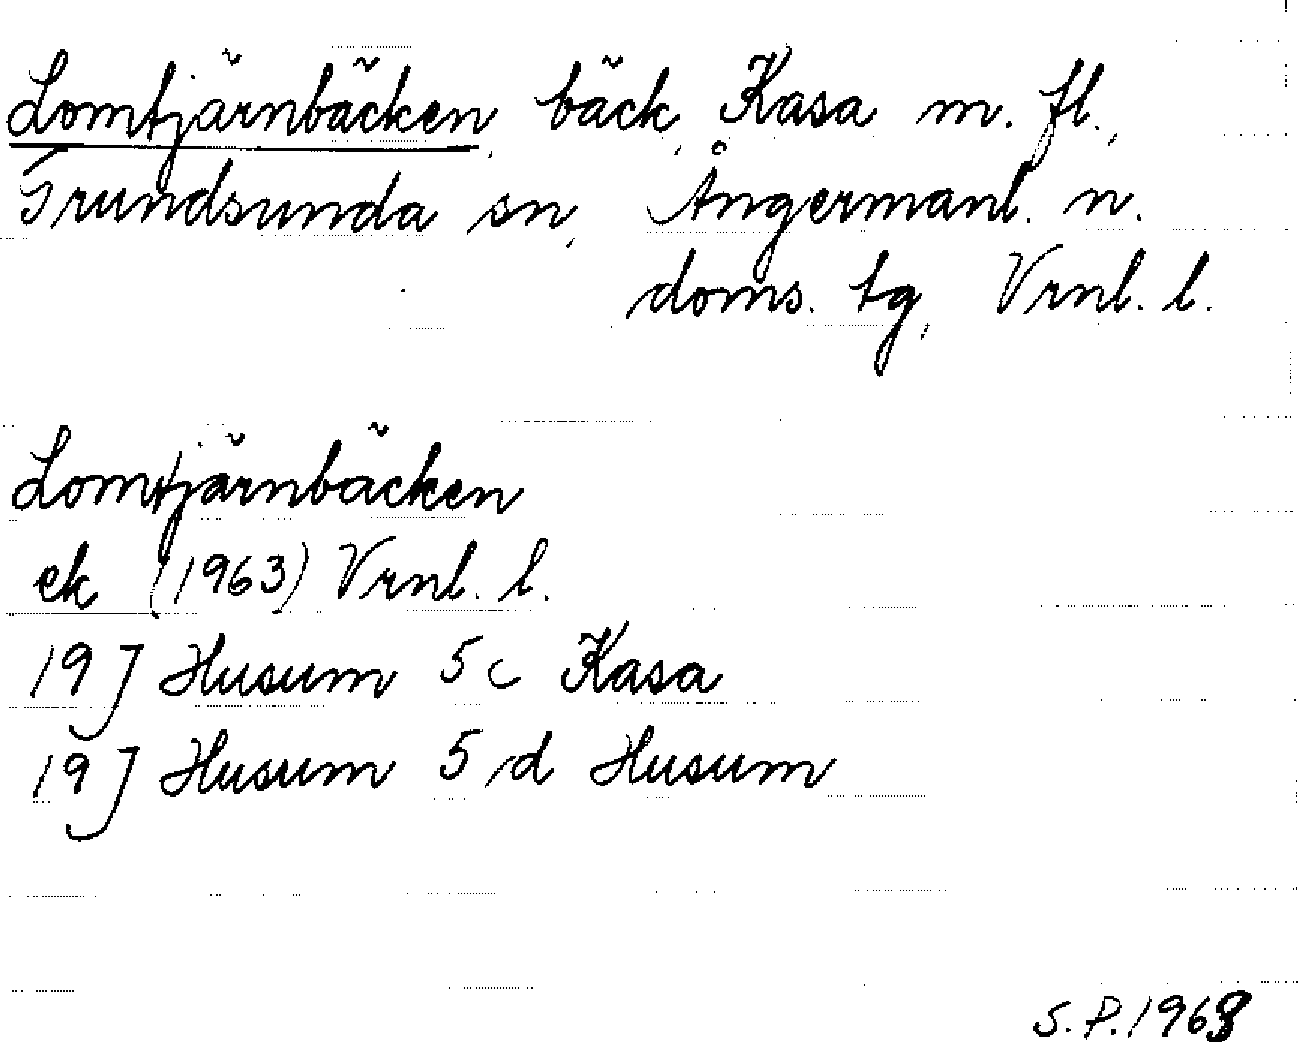 Lomtjärnbäcken, bäck, Kasa m. fl.,
Grundsunda sn, Ångermanl. n.
doms. tg, Vrnl. l.
Lomtjärnbäcken
ek (1963) Vrnl. l.
19 J Husum 5 c Kasa
19 J Husum 5 d Husum
S. P. 1968